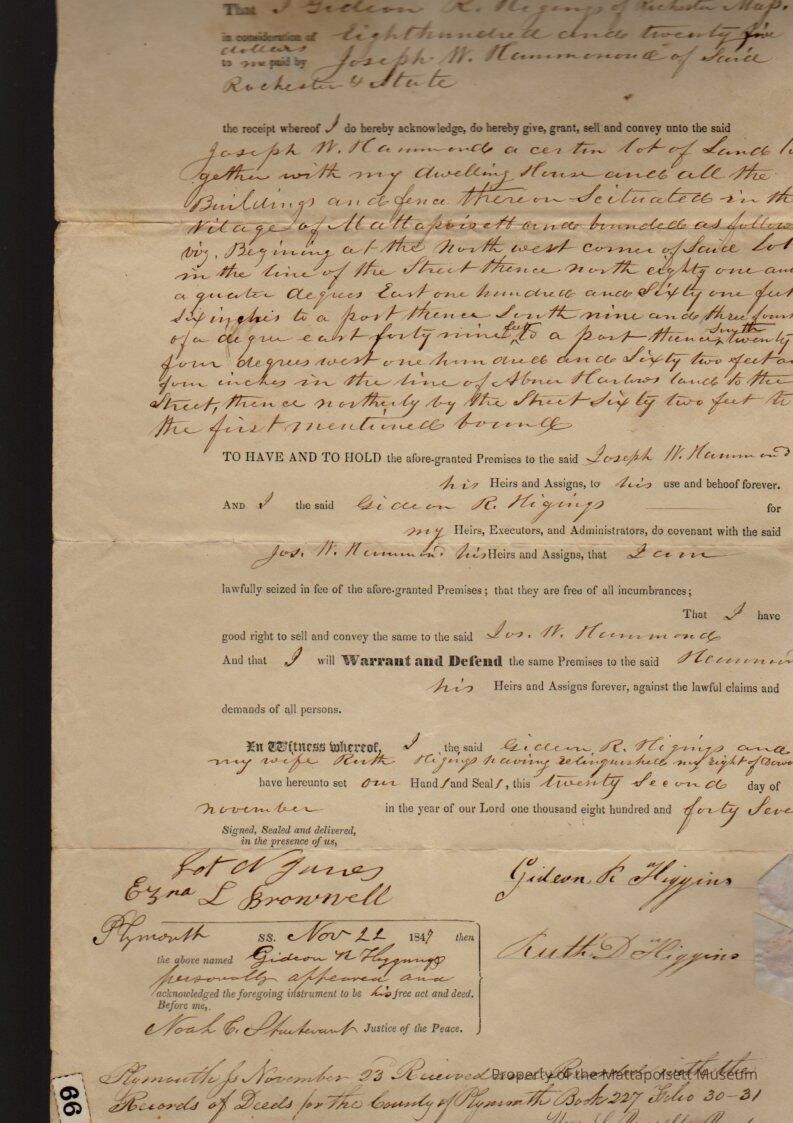 That I Gideon R. Higings of Rochester Mass.
in consideration of Eight hundred and twenty five
dollars
to me paid by Joseph W. Hammonond of Said
Rochester & State
the receipt whereof I do hereby acknowledge, do hereby give, grant, sell and convey unto the said
Joseph W. Hammond a certin lot of Land to
gether with my dwelling House and all the
Buildings and fence thereon Scituated in th
Vilage of Mattapoisett and bounded as follow
viz. Begining at the North west corner of Said Lot
in the line of the Street thence north eighty one an
a quater degrees East one hundred and Sixty one feet
six inches to a post thence South nine and three four
of a degree east forty nine feet to a post thence South twenty
four degrees west one hundred and Sixty two feet a
four inches in the line of Abner Harlows land to the
Street, thence northerly by the Street Sixty two feet to
the first mentioned bound
TO HAVE AND TO HOLD the afore-granted Premises to the said Joseph W. Hammond
his Heirs and Assigns, to his use and behoof forever.
AND I the said Gideon R. Higings for
my Heirs, Executors, and Administrators, do covenant with the said
Jos. W. Hammond his Heirs and Assigns, that I am
lawfully seized in fee of the afore-granted Premises; that they are free of all incumbrances;
That I have
good right to sell and convey the same to the said Jos. W. Hammond
And that I will Warrant and Defend the same Premises to the said Hammon
his Heirs and Assigns forever, against the lawful claims and
demands of all persons.
In Witness whereof, I the said Gideon R. Higings and
my wife Ruth Higings having relinquished my right of Dowe
have hereunto set our Hands and Seals, this twenty Second day of
november in the year of our Lord one thousand eight hundred and forty Seve
Signed, Sealed and delivered,
in the presence of us,
Lot N Jones
Ezra L Brownell
Gideon R Higgins
Ruth D Higgins
Plymouth SS. Nov 22 1847 then
the above named Gideon R Higgings
personally appeared and
acknowledged the foregoing instrument to be his free act and deed.
Before me,
Noah C. Sturtevant Justice of the Peace.
Plymouth ss November 23 Received
Property of the Mattapoisett Museum
Records of Deeds for the County of Plymouth Book 227 Folio 30-31
66